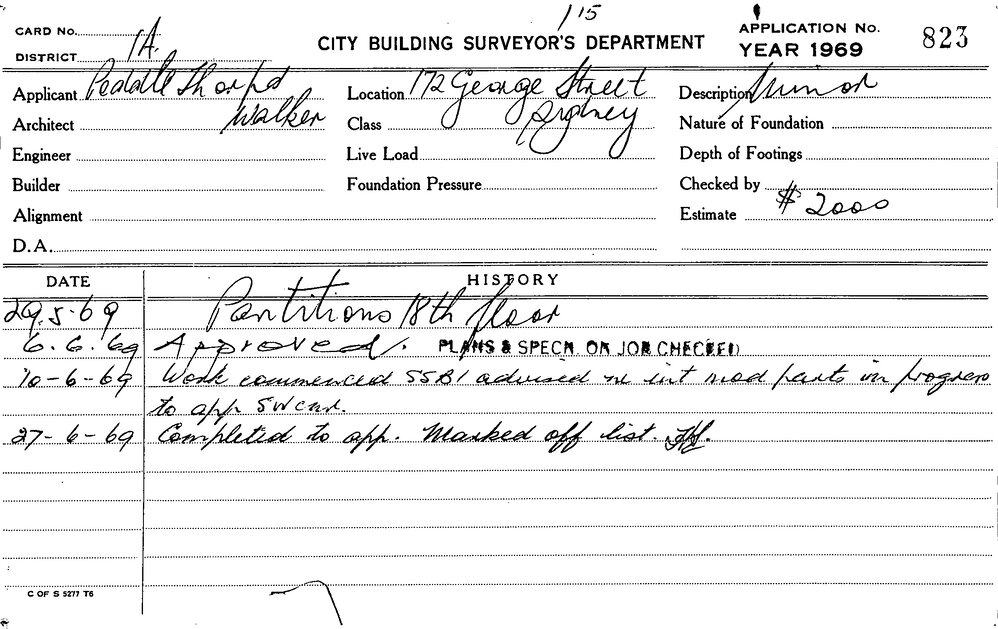 1/15
CARD No.
DISTRICT 1A.
CITY BUILDING SURVEYOR'S DEPARTMENT
APPLICATION No.
YEAR 1969
823
Applicant Peddle Thorp &
Walker
Location 172 George Street
Sydney
Description Minor
Architect
Class
Nature of Foundation
Engineer
Live Load
Depth of Footings
Builder
Foundation Pressure
Checked by
Alignment
Estimate $2000
D.A.
DATE
HISTORY
29.5.69 Partitions 18th floor
6.6.69 Approved. PLANS & SPECN. ON JOB CHECKED
10-6-69 Work commenced SSB1 advised re int mod parts in progress
to app
27-6-69 Completed to app. Marked off list.
C OF S 5277 T6